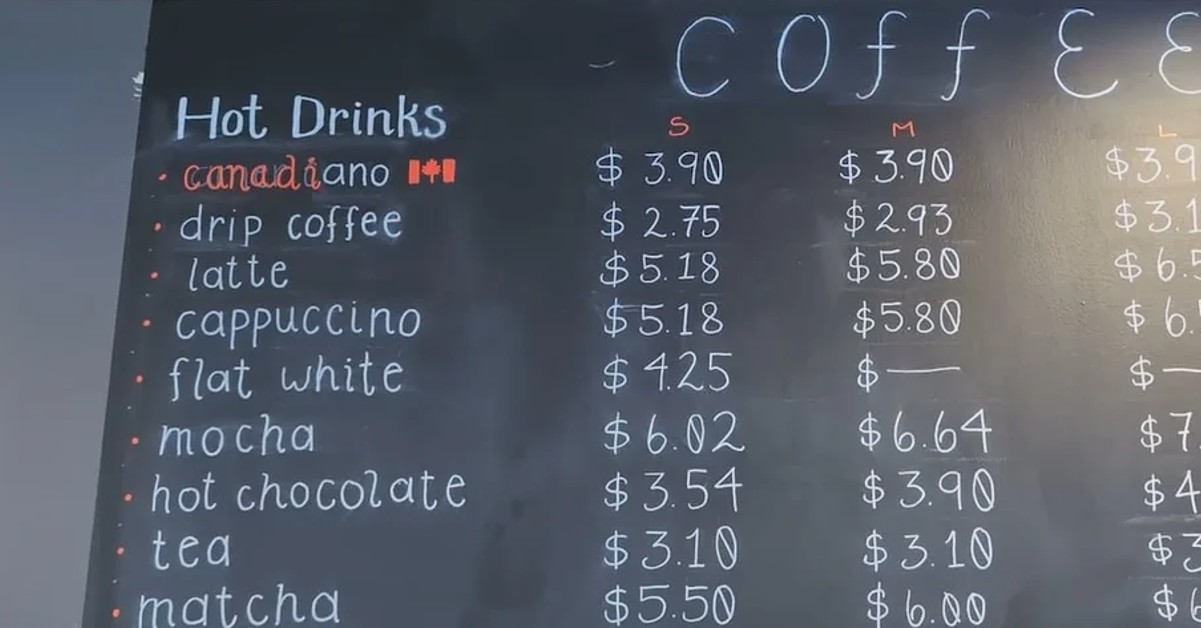 COffEE
Hot Drinks S M L
canadiano $ 3.90 $ 3.90 $3.9
drip coffee $ 2.75 $2.93 $3.1
latte $5.18 $5.80 $6.5
cappuccino $5.18 $5.80 $ 6.
flat white $ 4.25 $— $—
mocha $6.02 $6.64 $7
hot chocolate $3.54 $3.90 $4
tea $3.10 $3.10 $3
matcha $5.50 $6.00 $6